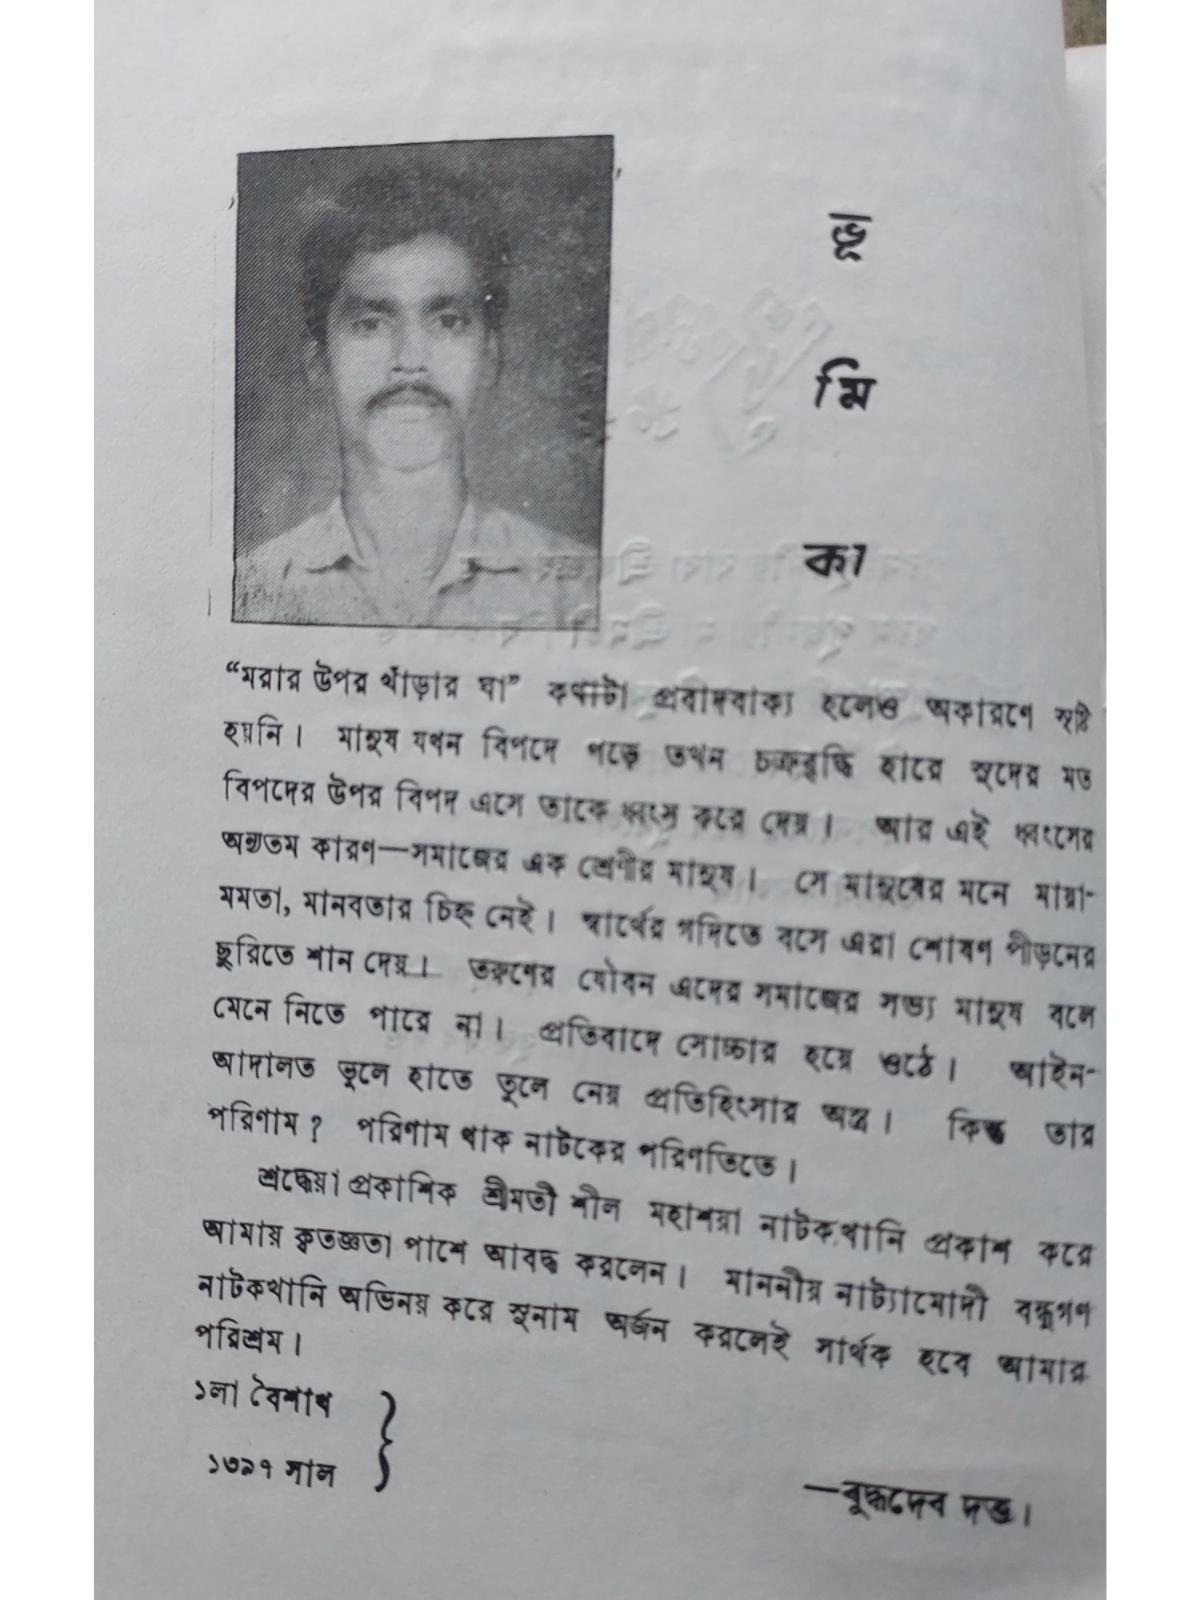 ভূ
মি
কা
“মরার উপর খাঁড়ার ঘা” কথাটা প্রবাদবাক্য হলেও অকারণে সৃষ্টি
হয়নি। মানুষ যখন বিপদে পড়ে তখন চক্রবৃদ্ধি হারে সুদের মত
বিপদের উপর বিপদ এসে তাকে ধ্বংস করে দেয়। আর এই ধ্বংসের
অন্যতম কারণ—সমাজের এক শ্রেণীর মানুষ। সে মানুষের মনে মায়া-
মমতা, মানবতার চিহ্ন নেই। স্বার্থের গদিতে বসে এরা শোষণ পীড়নের
ছুরিতে শান দেয়। তরুণের যৌবন এদের সমাজের সভ্য মানুষ বলে
মেনে নিতে পারে না। প্রতিবাদে সোচ্চার হয়ে ওঠে। আইন-
আদালত ভুলে হাতে তুলে নেয় প্রতিহিংসার অস্ত্র। কিন্তু তার
পরিণাম? পরিণাম থাক নাটকের পরিণতিতে।
শ্রদ্ধেয়া প্রকাশিক শ্রীমতী শীল মহাশয়া নাটকখানি প্রকাশ করে
আমায় কৃতজ্ঞতা পাশে আবদ্ধ করলেন। মাননীয় নাট্যামোদী বন্ধুগণ
নাটকখানি অভিনয় করে সুনাম অর্জন করলেই সার্থক হবে আমার
পরিশ্রম।
১লা বৈশাখ
১৩৯৭ সাল
—বুদ্ধদেব দত্ত।